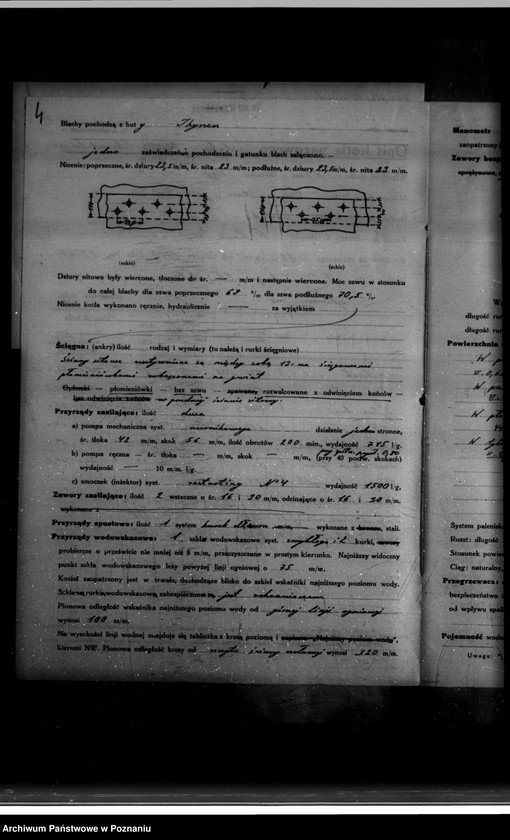 4
Blachy pochodzą z hut y Thyssen
jedno zaświadczenie pochodzenia i gatunku blach załączono.
Nicenie: poprzeczne, śr. dziury 23,5 m/m, śr. nita 23 m/m; podłużne, śr. dziury 23,5 m/m, śr. nita 23 m/m.
(szkic) (szkic)
Dziury nitowe były wiercone, tłoczone do śr. — m/m i następnie wiercone. Moc szwu w stosunku
do całej blachy dla szwa poprzecznego 63 % dla szwa podłużnego 70,5 %
Nicenie kotła wykonano ręcznie, hydraulicznie — za wyjątkiem
Ścięgna: (ankry) ilość rodzaj i wymiary (tu należą i rurki ścięgniowe)
Ściany sitowe są między sobą 12-ma
płomieniówkami na gwint
Opłonki — płomieniówki — bez szwu — spawane, rozwalcowane z odwinięciem końców —
bez odwinięcia końców w ścianie sitowej.
Przyrządy zasilające: ilość dwa
a) pompa mechaniczna syst. nurnikowego działanie jedno stronne,
śr. tłoka 42 m/m, skok 56 m/m, ilość obrotów 200 min., wydajność 745 l/g.
b) pompa ręczna — śr. tłoka — m/m, skok — m/m, (przy 40 podw. skokach)
wydajność — 10 m/m. l/g.
c) smoczek (inżektor) syst. restarting N° 4 wydajność 1500 l/g.
Zawory zasilające: ilość 2 wsteczne o śr. 16 i 30 m/m, odcinające o śr. 16 i 30 m/m.
wykonane z
Przyrządy spustowe: ilość 1 system kurek dławn. m/m, wykonane z bronzu, stali.
Przyrządy wodowskazowe: 1 szkło wodowskazowe syst. zwykłego i 2 kurki,
probiercze o prześwicie nie mniej niż 8 m/m, przeczyszczane w prostym kierunku. Najniższy widoczny
punkt szkła wodowskazowego leży powyżej linji ogniowej o 75 m/m.
Kocioł zaopatrzony jest w trwałe, dochodzące blisko do szkieł wskaźniki najniższego poziomu wody.
Szkła wodowskazowe, zabezpieczone są jak ochraniaczem
Pionowa odległość wskaźnika najniższego poziomu wody od linji ogniowej
wynosi 100 m/m.
Na wysokości linji wodnej znajduje się tabliczka z kresą poziomą i napisem „Najniższy poziom wody”.
kierowni NW. Pionowa odległość kresy od ściany sitowej wynosi 320 m/m.
Manometr
zaopatrzony
Zawory bezp
sprężynowe,
długość rur
długość rur
Powierzchnia
System palenisk
Ruszt: długość
Stosunek powie
Ciąg: naturalny,
Przegrzewacz:
bezpieczeństwa
od wpływu spalin
Pojemność wodn
Uwaga:
Archiwum Państwowe w Poznaniu